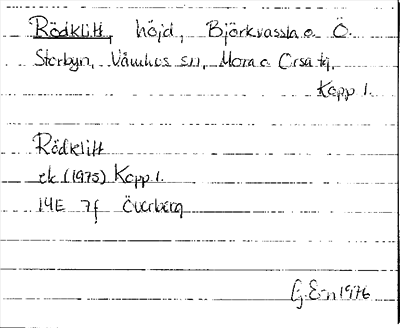 Rödklitt, höjd, Björkvassla o Ö.
Storbyn, Våmhus sn, Mora o Orsa tg.
Kopp 1.
Rödklitt
ek (1975) Kopp 1.
14E 7f Överberg
G.E-n 1976